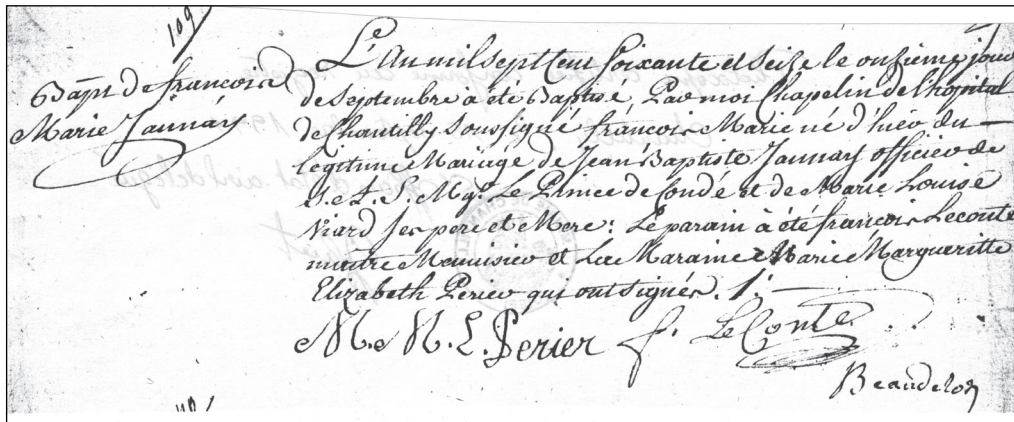 109
Bapt de francois
Marie Jannay
L'An mil sept Cent Soixante et Seize le onzieme jour
de Septembre à été Baptisé, Par moi Chapelin de l'hopital
de Chantilly Soussigné francois Marie né d'hier du
legitime Mariage de Jean Baptiste Jannay officier de
S. A. S. Mgr. Le Prince de Condé et de Marie Louise
Viard Ses pere et Mere: Le parain à été francois Leconte
maitre Menuisier et La Maraine Marie Margueritte
Elizabeth Perier qui ont signés ./.
M. M. E. Perier f. LeConte
Beaudelon